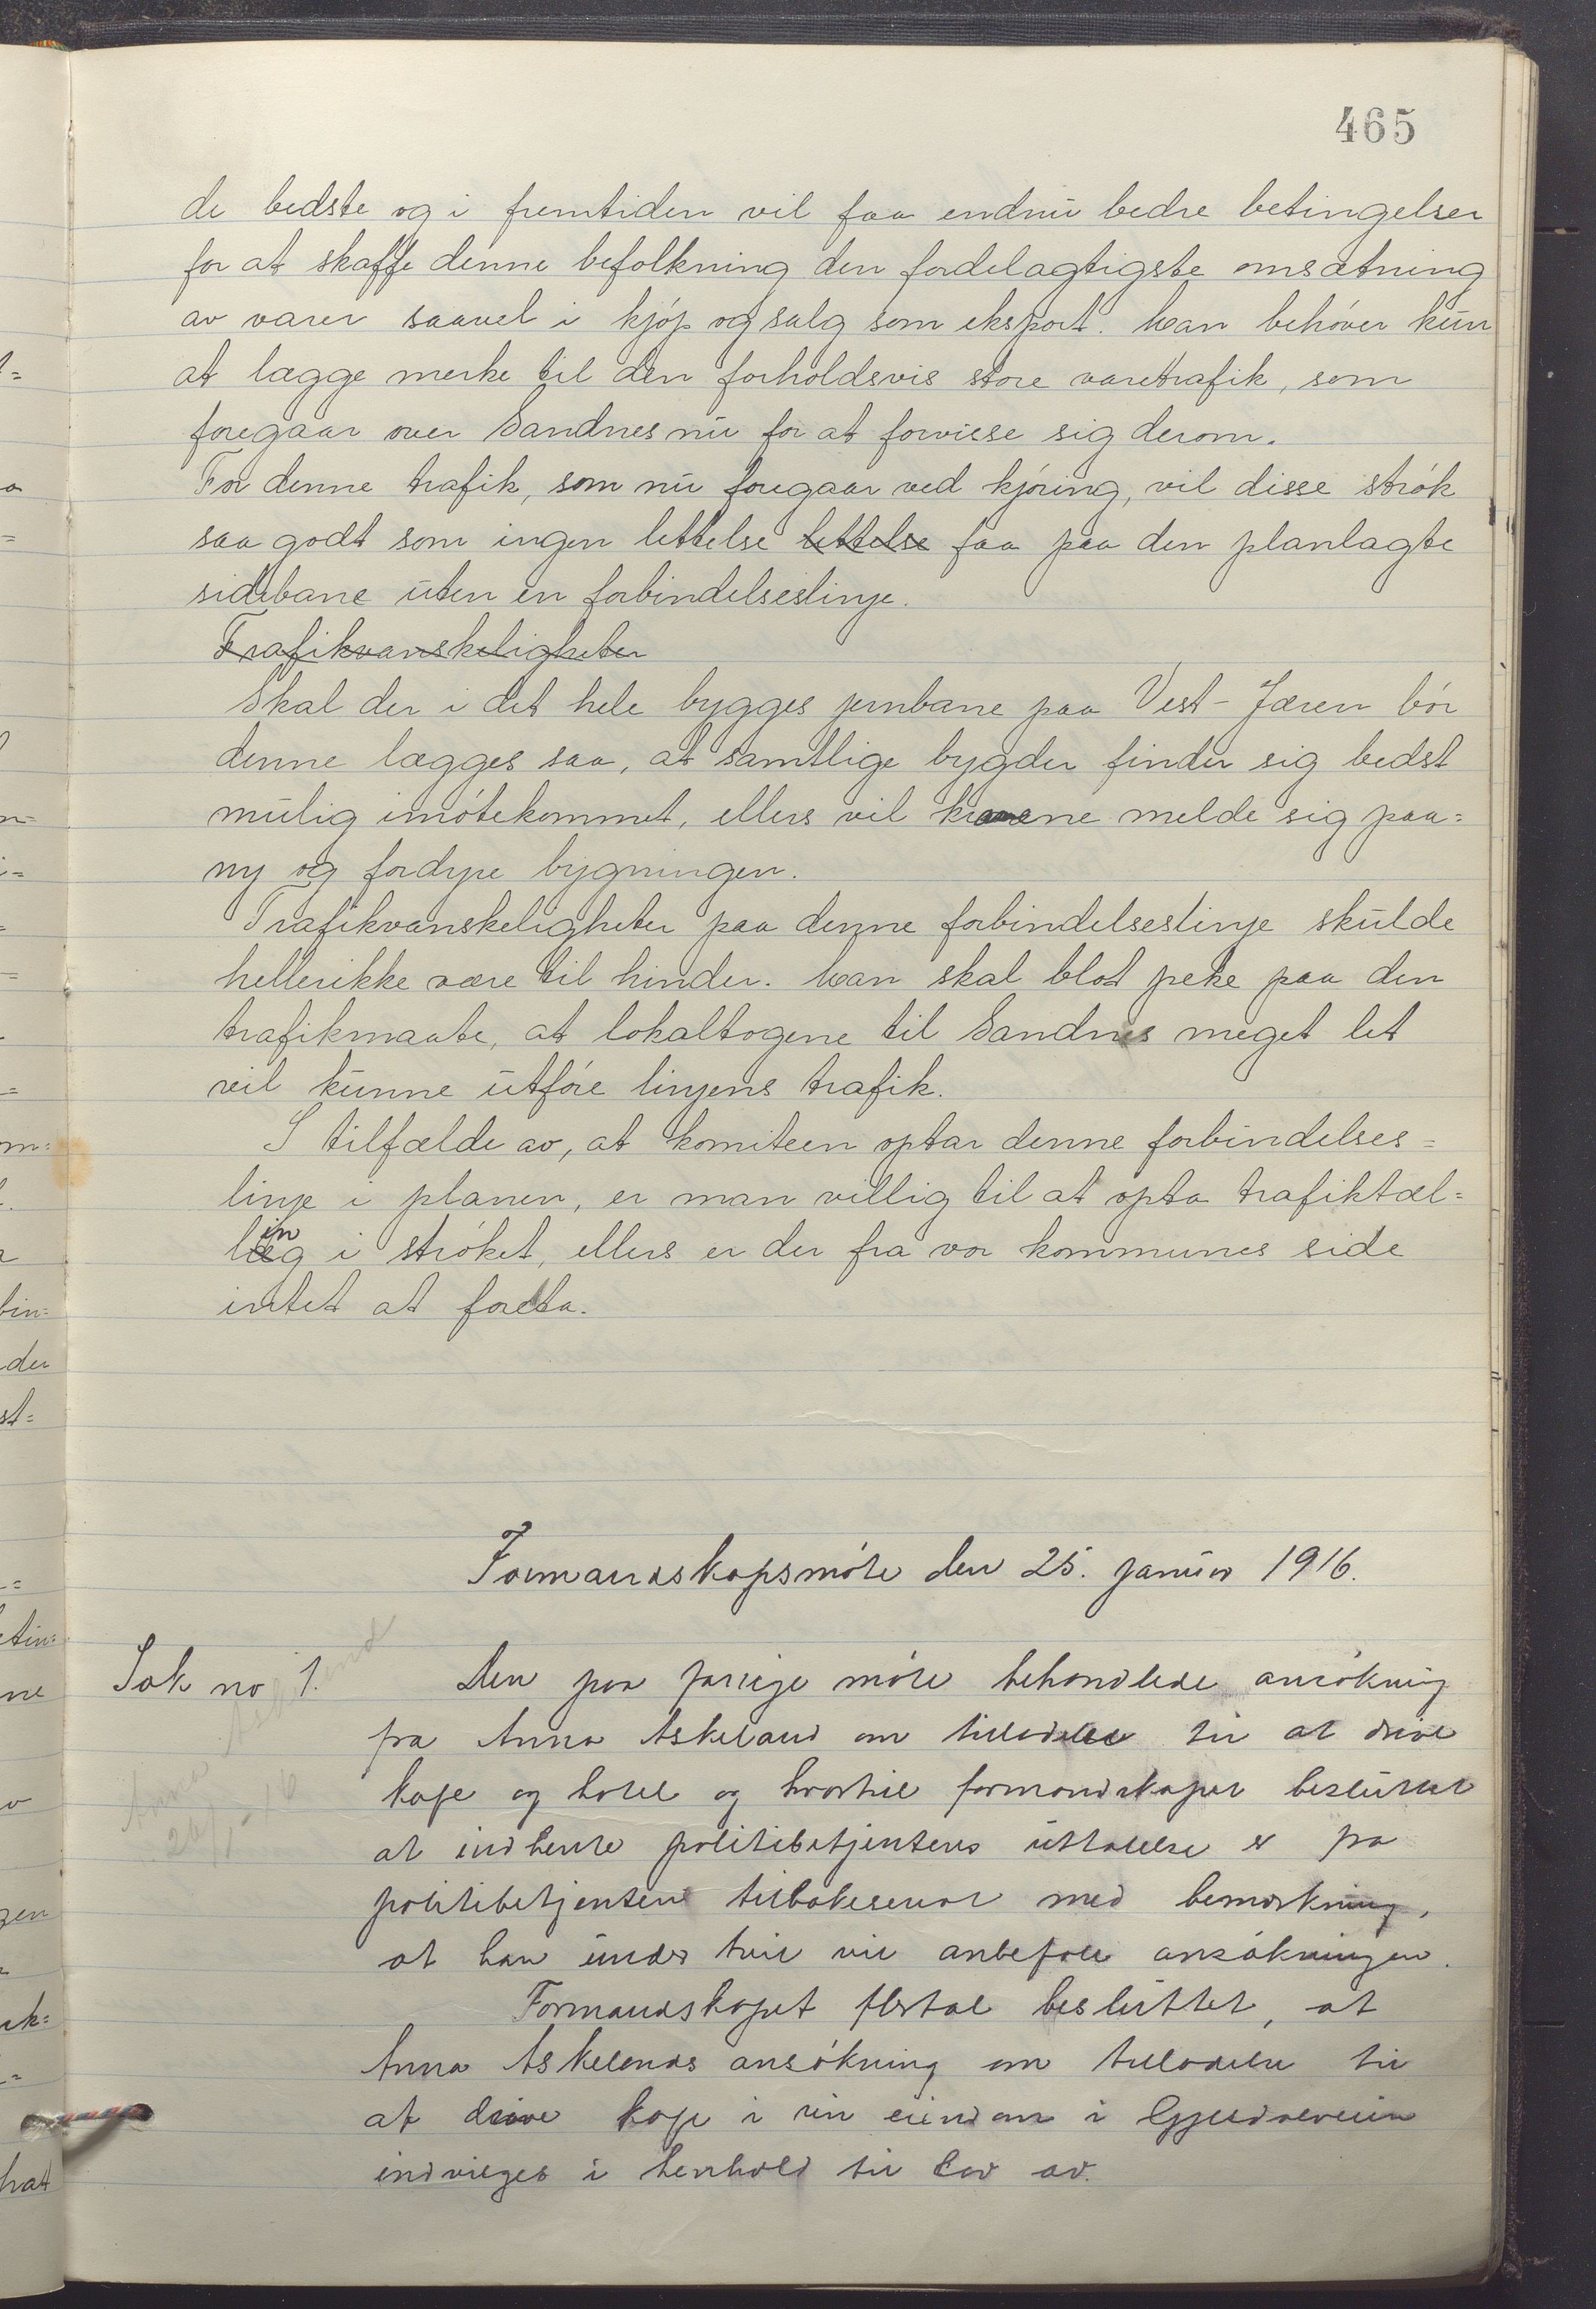 465
de bedste og i fremtiden vil faa endnu bedre betingelser
for at skaffe denne befolkning den fordelagtigste omsætning
av varer saavel i kjøp og salg som eksport. Man behøver kun
at lægge merke til den forholdsvis store varetrafik, som
foregaar over Sandnes nu for at forvisse sig derom.
For denne trafik, som nu foregaar ved kjøring, vil disse strøk
saa godt som ingen lettelse lettelse faa paa den planlagte
sidebane uten en forbindelseslinje.
Trafikvanskeligheter
Skal der i det hele bygges jernbane paa Vest-Jæren bør
denne lægges saa, at samtlige bygder finder sig bedst
mulig imøtekommet, ellers vil kravene melde sig paa=
ny og fordyre bygningen.
Trafikvanskeligheter paa denne forbindelseslinje skulde
hellerikke være til hinder. Man skal blot peke paa den
trafikmaate, at lokaltogene til Sandnes meget let
vil kunne utføre linjens trafik.
I tilfælde av, at komiteen optar denne forbindelses=
linje i planen, er man villig til at opta trafiktæl=
ling i strøket, ellers er der fra vor kommunes side
intet at foreta.
Formandskapsmøte den 25. januar 1916.
Sak no 1. Den paa forrige møte behandlede ansøkning
fra Anna Askeland om tilladelse til at drive
kafe og hotel og hvortil formandskapet besluttet
at indhente politibetjentens uttalelse er fra
politibetjenten tilbakesendt med bemerkning,
at han under tvil vil anbefale ansøkningen.
Formandskapet flertal besluttet, at
Anna Askelands ansøkning om tilladelse til
at drive kafe i sin eiendom i Gjesdalveien
indvilges i henhold til lov av.
Anna
Askeland
26/1-16